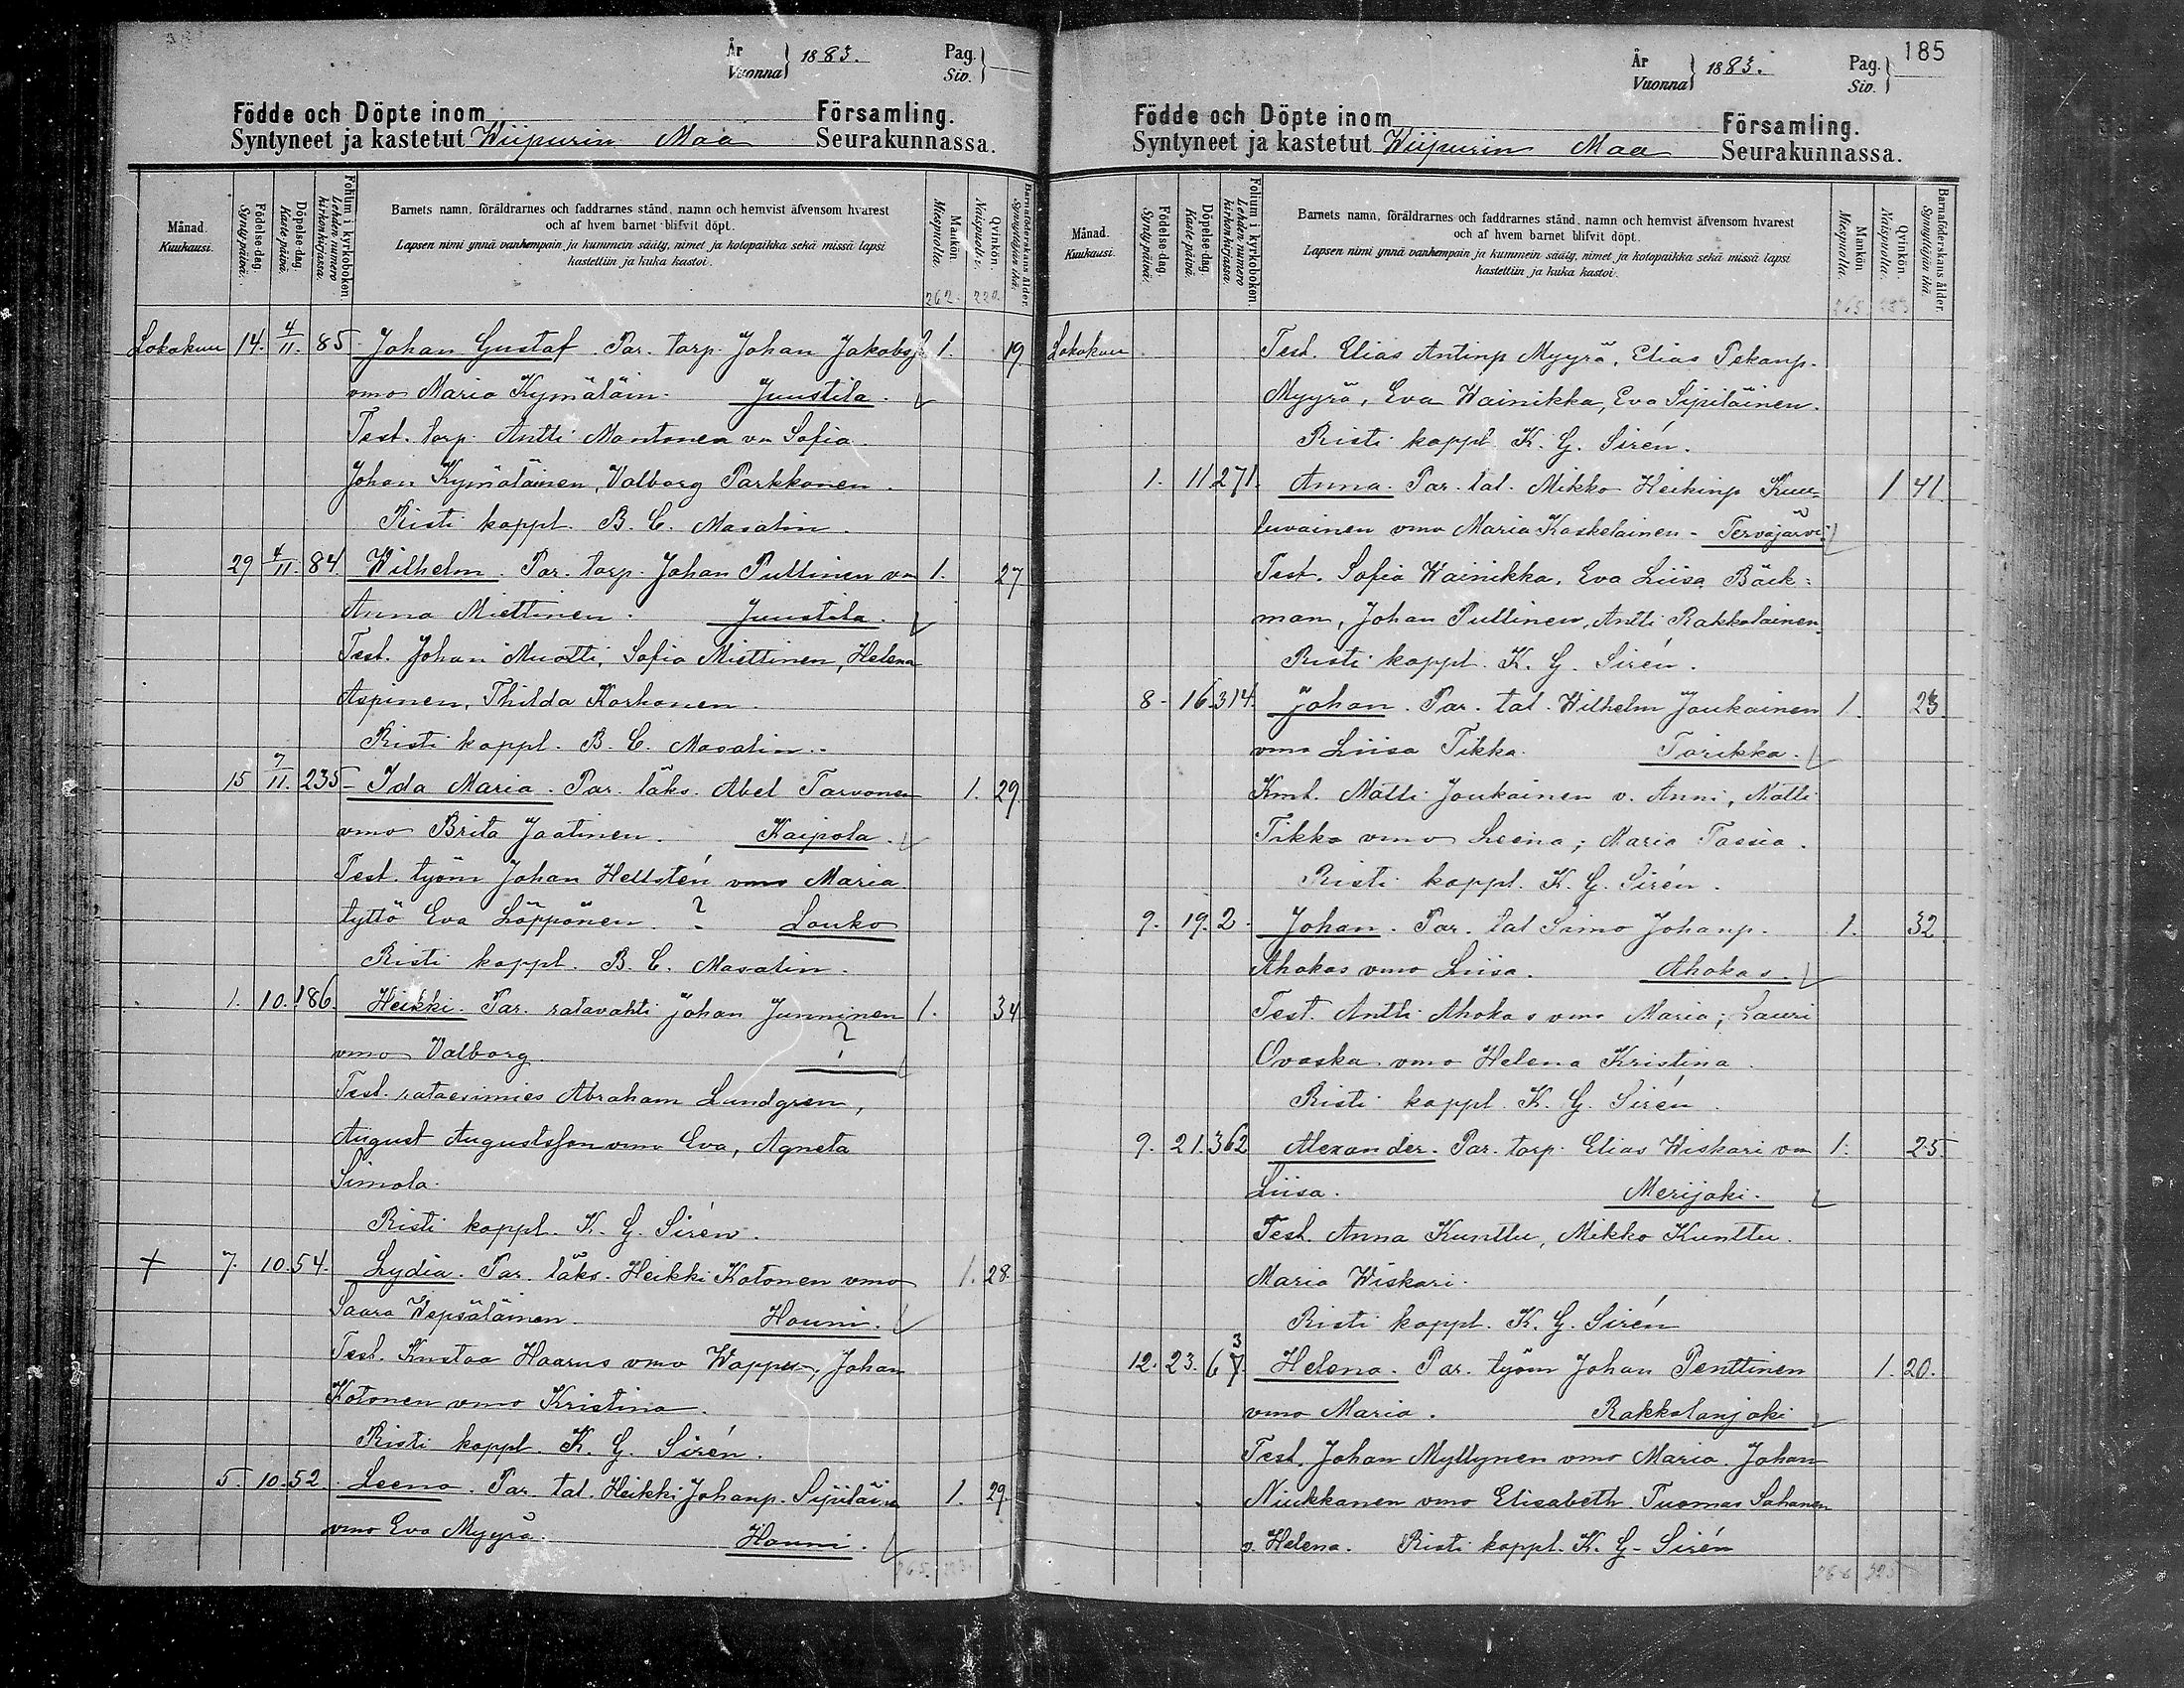 År
Vuonna } 1883.
Pag.
Siv. }
Födde och Döpte inom Församling.
Syntyneet ja kastetut Wiipurin Maa Seurakunnassa.
Månad.
Kuukausi.
Födelse-dag.
Syntypäivä.
Döpelse-dag
Kaste päivä.
Folium i kyrkoboken
Lehden numero kirkonkirjassa.
Barnets namn, föräldrarnes och faddrarnes stånd, namn och hemvist äfvensom hvarest
och af hvem barnet blifvit döpt.
Lapsen nimi ynnä vanhempain ja kummein sääty, nimet ja kotopaikka sekä missä lapsi
kastettiin ja kuka kastoi.
Mankön.
Miespuolia.
Qvinkön.
Naispuolia.
Barnaföderskans ålder.
Synnyttäjän ikä.
262. 220.
Lokakuu 14. 4/11. 85 Johan Gustaf. Par. torp. Johan Jakobsf. 1. 19.
vmo Maria Kymäläin. Juustila.
Test. torp. Antti Mantonen vm Sofia
Johan Kymäläinen, Valborg Parkkonen.
Risti kappl. B. C. Masalin.
29 4/11. 84 Wilhelm. Par. torp. Johan Pullinen vm 1. 27
Anna Miettinen. Juustila.
Test. Johan Muotti, Sofia Miettinen, Helena
Aspinen, Thilda Korhonen.
Risti kappl. B. C. Masalin.
15 7/11. 235 Ida Maria. Par. läks. Abel Tarvonen 1. 29.
vmo Brita Jaatinen. Kaipola.
Test. työm Johan Hellstén vmo Maria
tyttö Eva Löppönen. ? Louko
Risti kappl. B. C. Masalin.
1. 10. 186. Heikki. Par. ratavahti Johan Junninen 1. 34
vmo Valborg. ?
Test. rataesimies Abraham Lundgren,
August Augustsson vmo Eva, Agneta
Simola.
Risti kappl. K. G. Sirén.
+ 7. 10. 54. Lydia. Par. läks. Heikki Kotonen vmo 1. 28.
Saara Wepsäläinen. Houni.
Test. Kustaa Haarus vmo Wappu, Johan
Kotonen vmo Kristina.
Risti kappl. K. G. Sirén.
5. 10. 52. Leena. Par. tal. Heikki Johanp. Sipiläin 1. 29.
vmo Eva Myyrä. Houni.
265.
185
År
Vuonna } 1883.
Pag.
Siv. }
Födde och Döpte inom Församling.
Syntyneet ja kastetut Wiipurin Maa Seurakunnassa.
Månad.
Kuukausi.
Födelse-dag.
Syntypäivä.
Döpelse-dag
Kaste päivä.
Folium i kyrkoboken
Lehden numero kirkonkirjassa.
Barnets namn, föräldrarnes och faddrarnes stånd, namn och hemvist äfvensom hvarest
och af hvem barnet blifvit döpt.
Lapsen nimi ynnä vanhempain ja kummein sääty, nimet ja kotopaikka sekä missä lapsi
kastettiin ja kuka kastoi.
Mankön
Miespuolia.
Qvinkön.
Naispuolia.
Barnaföderskans ålder.
Synnyttäjän ikä.
265
Lokakuu Test. Elias Antinp Myyrä, Elias Pekanp.
Myyrä, Eva Wainikka, Eva Sipiläinen.
Risti kappl K. G. Sirén.
1. 11 271. Anna. Par. tal. Mikko Heikinp Kuu- 1 41
luvainen vmo Maria Koskelainen - Tervajärvi
Test. Sofia Wainikka, Eva Liisa Bäck-
man, Johan Pullinen, Antti Rakkolainen.
Risti kappl. K. G. Sirén.
8. 16. 314. Johan. Par. tal. Wilhelm Joukainen 1. 23.
vmo Liisa Tikka. Tarikka.
Kml. Matti Joukainen v. Anni, Matti
Tikka vmo Leena; Maria Tassia.
Risti kappl. K. G. Sirén.
9. 19. 2. Johan. Par. tal Simo Johanp. 1. 32
Ahokas vmo Liisa. Ahokas.
Test. Antti Ahokas vmo Maria; Lauri
Ovaska vmo Helena Kristina.
Risti kappl. K. G. Sirén.
9. 21. 362 Alexander. Par. torp. Elias Wiskari vm 1. 25.
Liisa. Merijoki.
Test. Anna Kunttu, Mikko Kunttu.
Maria Wiskari.
Risti kappl. K. G. Sirén
12. 23. 63 Helena. Par. työm Johan Penttinen 1. 20.
vmo Maria. Rakkolanjoki
Test. Johan Myllynen vmo Maria. Johan
Niukkanen vmo Elisabeth. Tuomas Sahanen
v. Helena. Risti kappl. K. G. Sirén